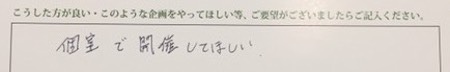 こうした方が良い・このような企画をやってほしい等、ご要望がございましたらご記入ください。
個室で開催してほしい